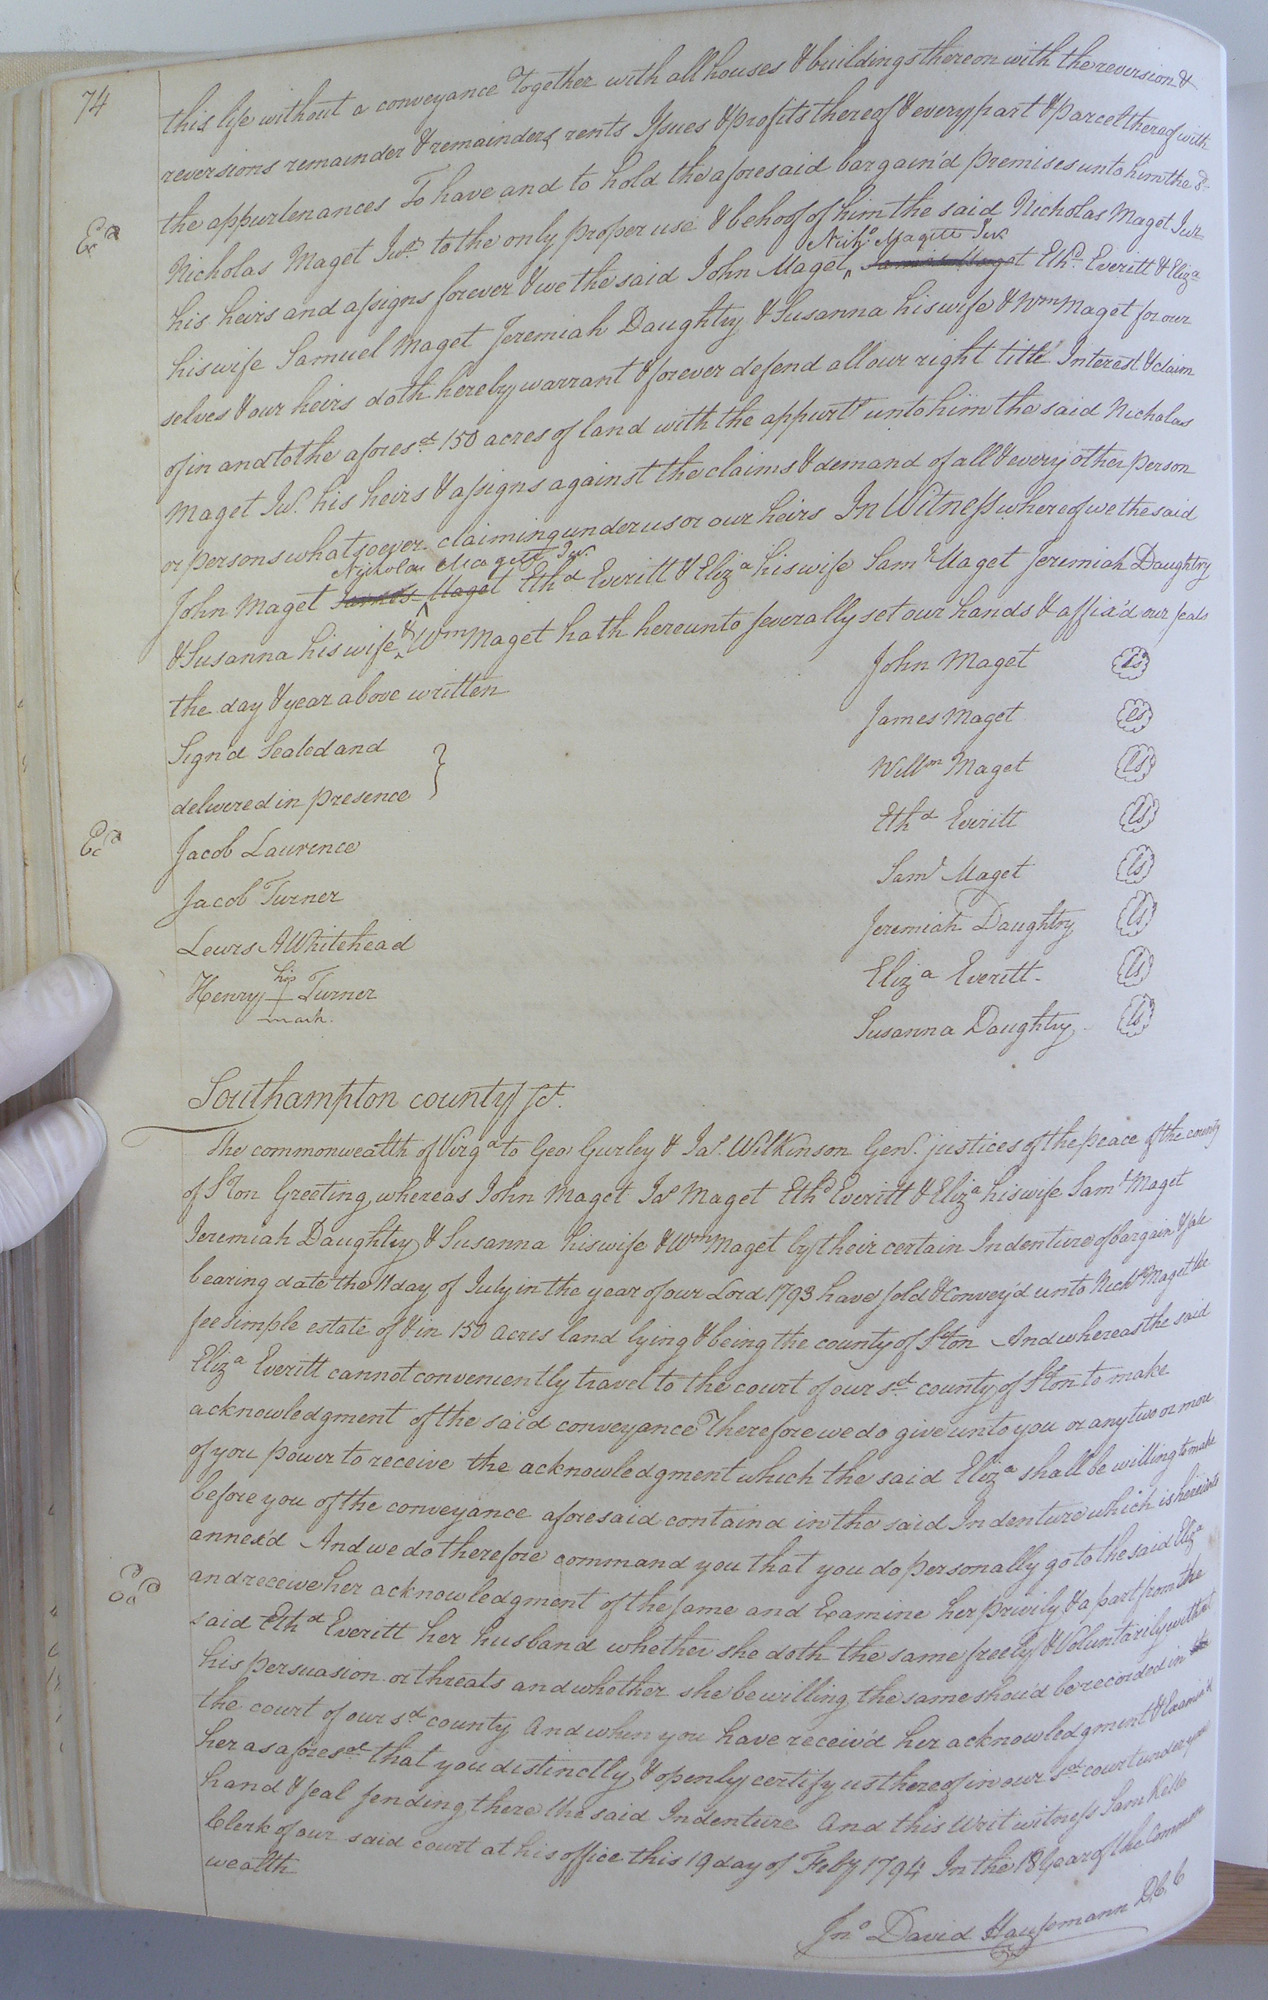 74
this life without a conveyance Together with all houses & buildings thereon with the reversion &
reversions remainder & remainders rents Issues & profits thereof & every part & parcel thereof with
the appurtenances To have and to hold the aforesaid bargain'd premises unto him the sd
Nicholas Maget Junr to the only proper use & behoof of him the said Nicholas Maget Junr
Nichs Magett Jur
his heirs and assigns forever & we the said John Maget ^ James Maget Ethd Everitt & Eliza
his wife Samuel Maget Jeremiah Daughtry & Susanna his wife & Wm Maget for our
selves & our heirs doth hereby warrant & forever defend all our right title Interest & claim
of in and to the aforesd 150 acres of land with the appurts unto him the said Nicholas
Maget Jur his heirs & assigns against the claims & demand of all & every other person
or persons whatsoever claiming under us or our heirs In Witness whereof we the said
Nicholas Magett Jur
John Maget James ^ Maget Ethd Everitt & Eliza his wife Saml Maget Jeremiah Daughtry
& Susanna his wife ^& Wm Maget hath hereunto severally set our hands & affix'd our seals
the day & year above written
John Maget ls
James Maget ls
Signd Sealed and
Willm Maget ls
delivered in presence
Ethd Everitt ls
Jacob Laurence
Saml Maget ls
Jacob Turner
Jeremiah Daughtry ls
Lewis A Whitehead
Eliza Everitt ls
his
Henry + Turner
mark
Susanna Daughtry ls
Southampton county Sct.
The commonwealth of Virga to Geo Gurley & Jas. Wilkinson Gen. justices of the peace of the county
of S'ton Greeting whereas John Maget Jas Maget Ethd Everitt & Eliza his wife Saml Maget
Jeremiah Daughtry & Susanna his wife & Wm Maget by their certain Indenture of bargain & sale
bearing date the 11 day of July in the year of our Lord 1793 have sold & Convey'd unto Nichs Maget the
fee simple estate of & in 150 acres land lying & being the county of S'ton And whereas the said
Eliza Everitt cannot conveniently travel to the court of our sd county of S'ton to make
acknowledgment of the said conveyance Therefore we do give unto you or any two or more
of you power to receive the acknowledgment which the said Eliza shall be willing to make
before you of the conveyance aforesaid containd in the said Indenture which is hereunto
annex'd And we do therefore command you that you do personally go to the said Eliza
and receive her acknowledgment of the same and Examine her privily & apart from the
said Ethd Everitt her husband whether she doth the same freely & Voluntarily without
his persuasion or threats and whether she be willing the same shoud be recorded in
the court of our sd county And when you have receiv'd her acknowledgment & Examin'd
her as aforesd that you distinctly & openly certify us thereof in our sd court under your
hand & seal sending there the said Indenture And this Writ witness Saml Kello
Clerk of our said court at his office this 19 day of Feby 1794 In the 18 Year of the Common
wealth
Jno David Haussmann D.C.C